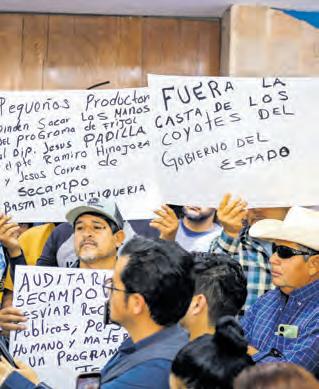 Pequeños Productor
Piden Sacar LAS MANOS
DEL PROGRAMA de FRIJOL
al Dip. Jesus PADILLA
el pte RAMIRO HINOJOZA
y Jesus CORREA de
secampo
BASTA DE POLITIQUERIA
FUERA LA
CASTA DE LOS
COYOTES DEL
GOBIERNO DEL
ESTADO
AUDITAR
SECAMPO
DESVIAR REC
PUBLICOS, PER
HUMANO y MATE
UN PROGRAM